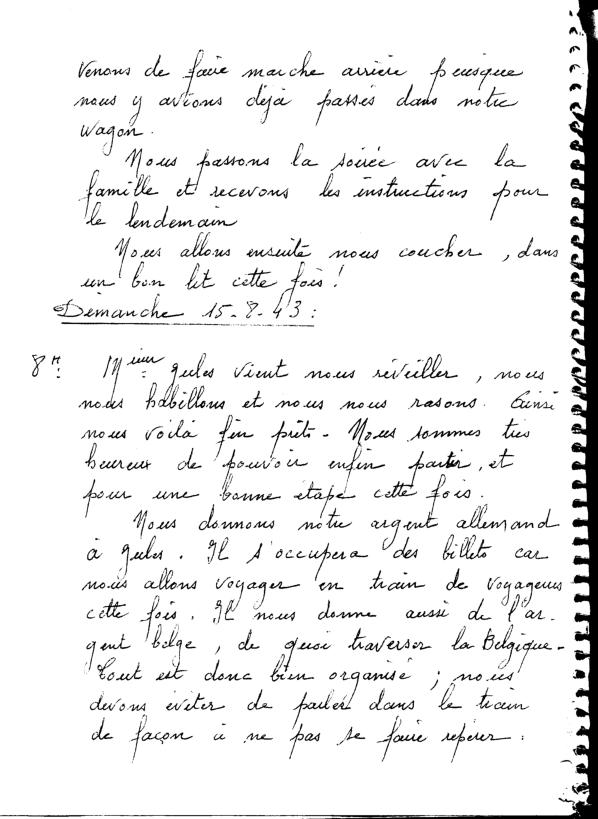 venons de faire marche arrière puisque
nous y avions déjà passés dans notre
wagon.
Nous passons la soirée avec la
famille et recevons les instructions pour
le lendemain
Nous allons ensuite nous coucher, dans
un bon lit cette fois!
Dimanche 15-8-43:
8H: Mieur Jules vient nous réveiller, nous
nous habillons et nous nous rasons. Ainsi
nous voilà fin prêts. Nous sommes très
heureux de pouvoir enfin partir, et
pour une bonne étape cette fois.
Nous donnons notre argent allemand
à Jules. Il s'occupera des billets car
nous allons voyager en train de voyageurs
cette fois. Il nous donne aussi de l'ar-
gent belge, de quoi traverser la Belgique.
Tout est donc bien organisé; nous
devons éviter de parler dans le train
de façon à ne pas se faire repérer.